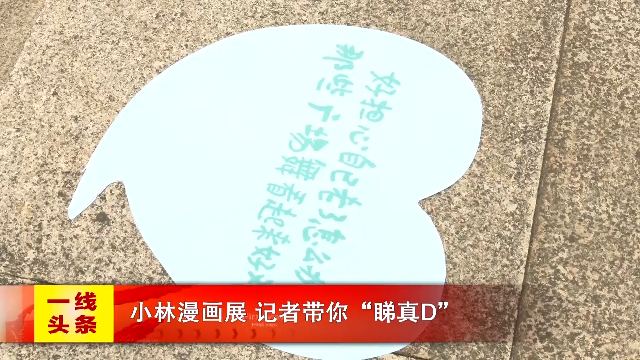 好担心自己老了怎么
那些广场舞看起来好
一线
头条
小林漫画展 记者带你“睇真D”